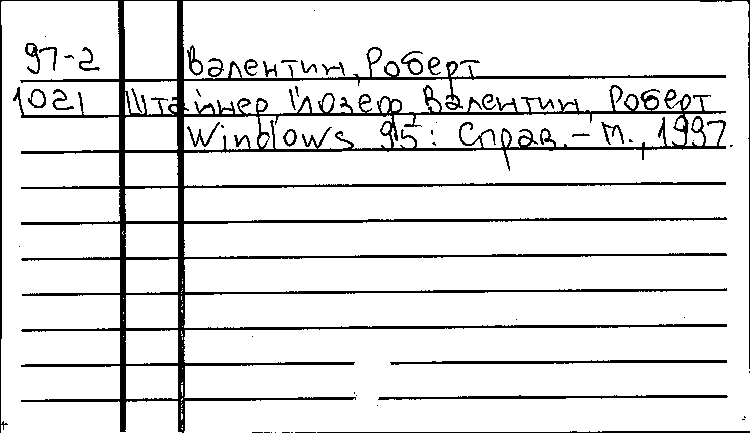 97-2 Валентин, Роберт
1021 Штайнер Йозеф, Валентин, Роберт
Windows 95: Справ. – М., 1997.